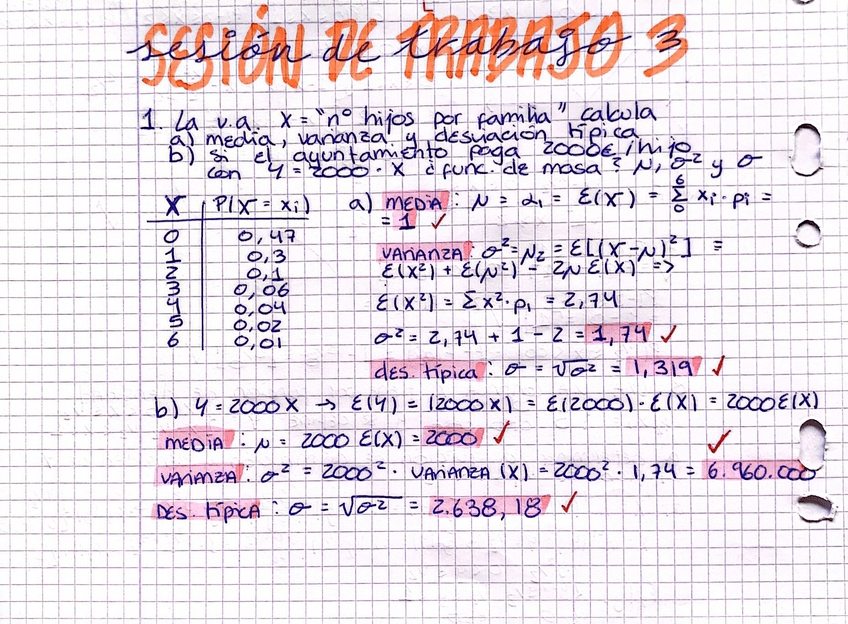 SESIÓN DE TRABAJO 3
sesión de trabajo 3
1. La v.a. X = "nº hijos por familia" calcula
a) media, varianza y desviación típica
b) si el ayuntamiento paga 2000€/hijo
con Y = 2000 · X ¿func. de masa? μ, σ² y σ
X | P(X = xi)
0 | 0,47
1 | 0,3
2 | 0,1
3 | 0,06
4 | 0,04
5 | 0,02
6 | 0,01
a) MEDIA : μ = α₁ = E(X) = Σ₀⁶ xi · pi =
= 1 ✓
VARIANZA : σ² = μ₂ = E[(X-μ)²] =
E(X²) + E(μ²) - 2μE(X) =>
E(X²) = Σx² · pi = 2,74
σ² = 2,74 + 1 - 2 = 1,74 ✓
des. típica : σ = √σ² = 1,319 ✓
b) Y = 2000X → E(Y) = (2000X) = E(2000) · E(X) = 2000E(X)
MEDIA : μ = 2000 E(X) = 2000 ✓
VARIANZA : σ² = 2000² · VARIANZA (X) = 2000² · 1,74 = 6.960.000 ✓
DES. típica : σ = √σ² = 2.638,18 ✓